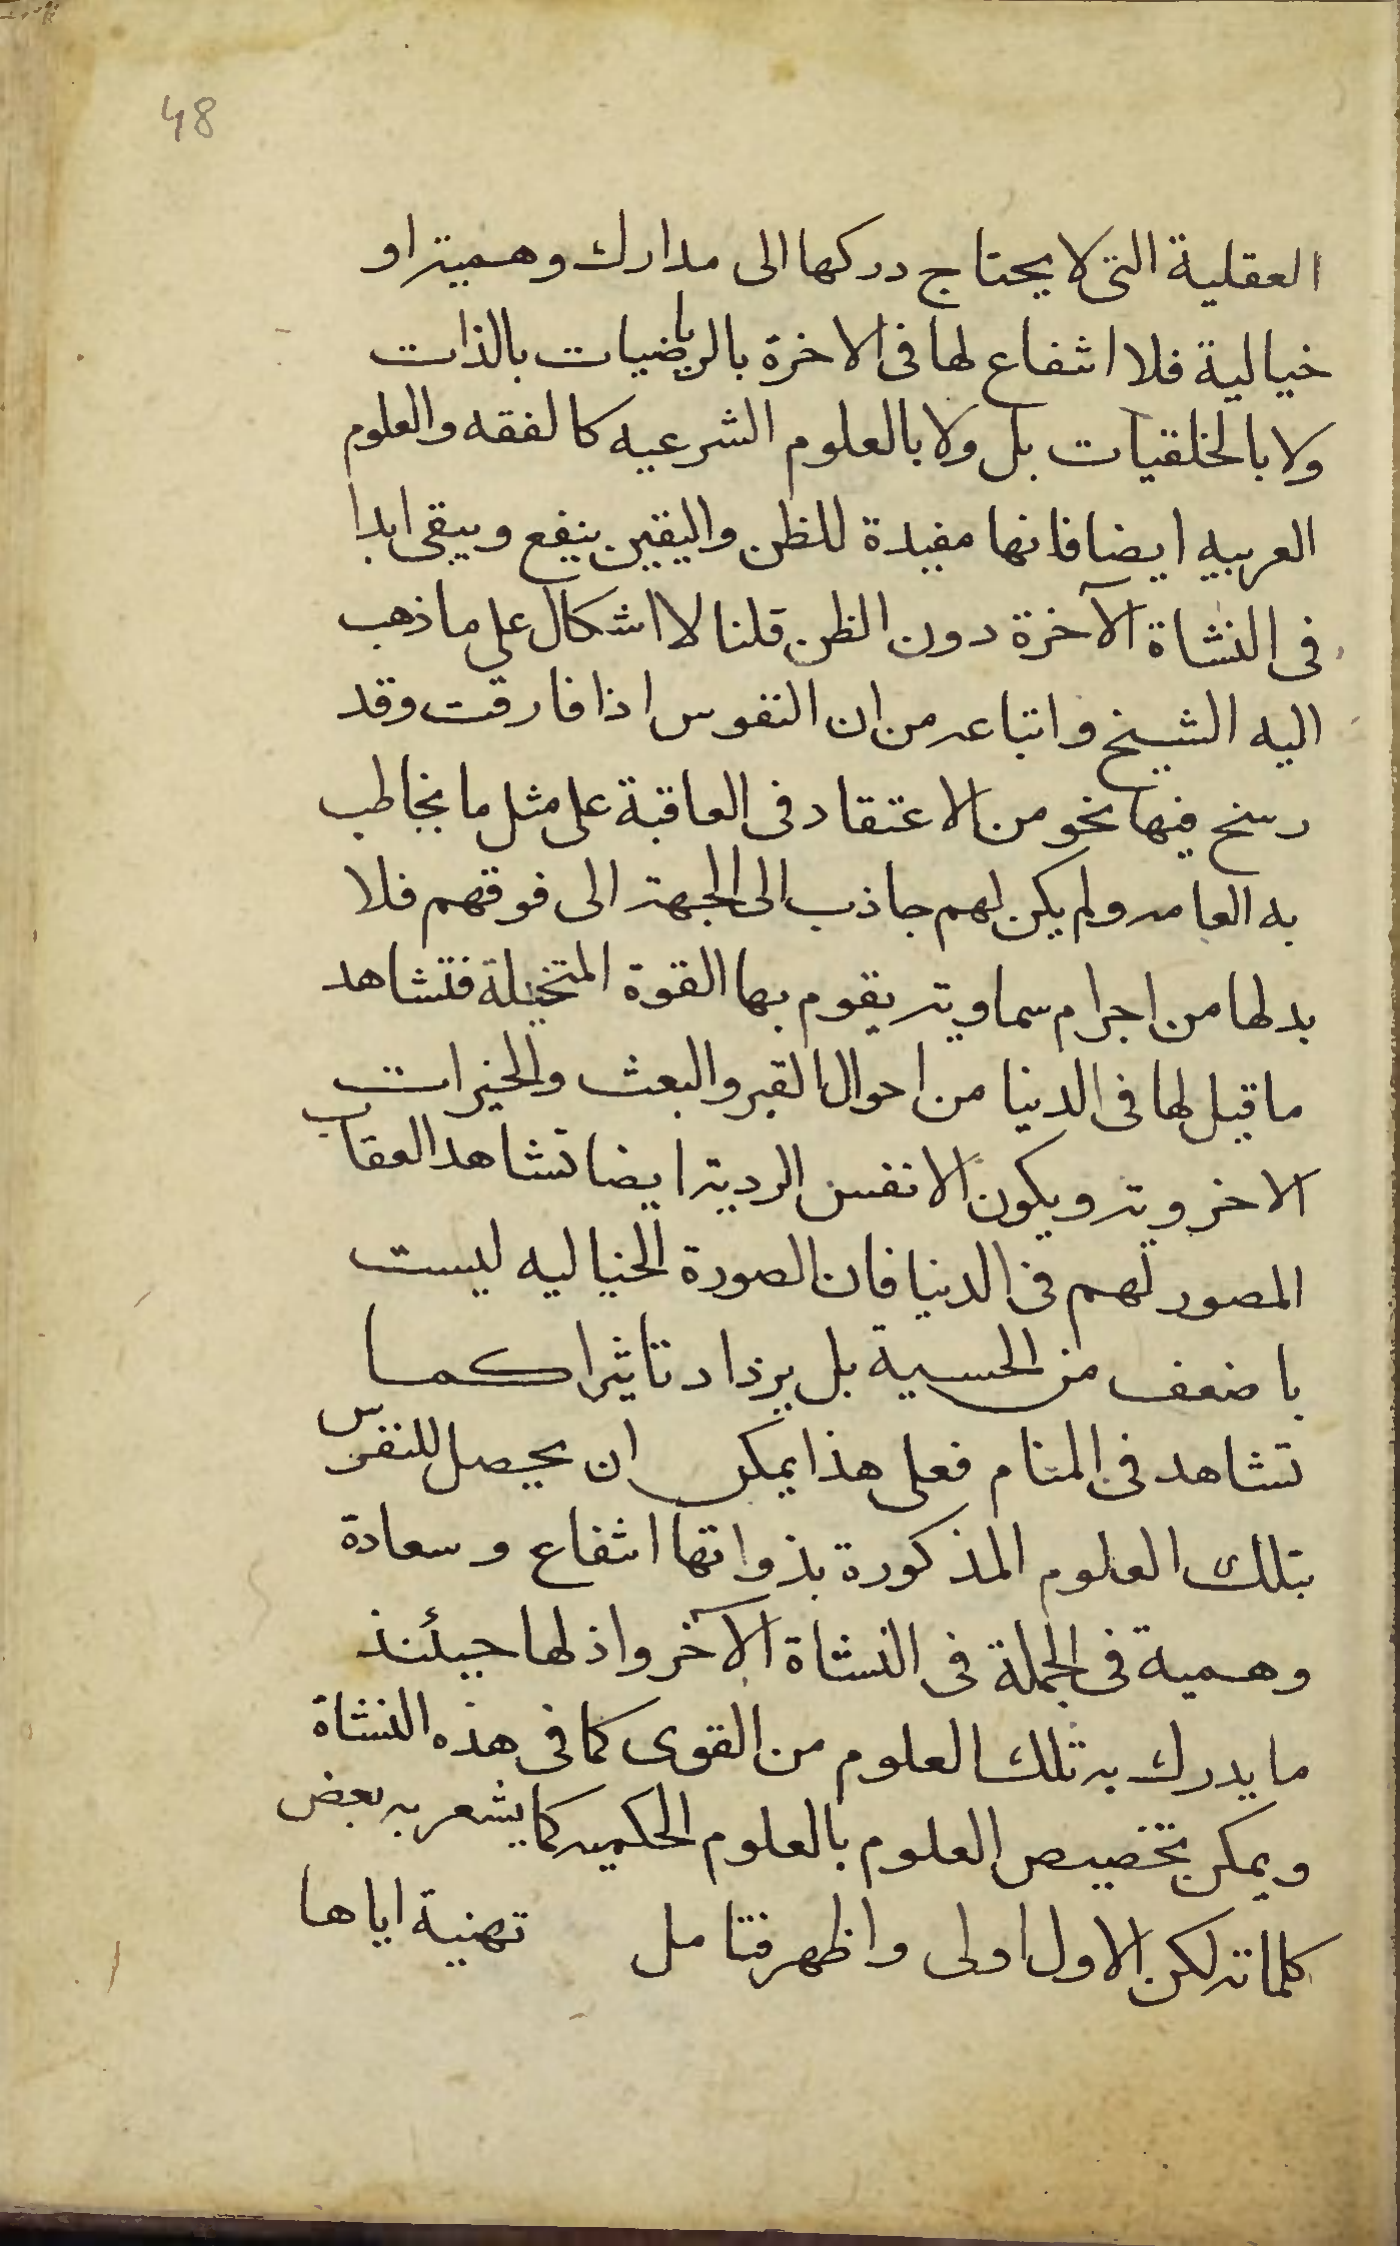 48
العقلية التى لا يحتاج دركها الى مدارك وهمية او
خيالية فلا انتفاع لها فى الاخرة بالرياضيات بالذات
ولا بالخلقيات بل ولا بالعلوم الشرعيه كالفقه والعلوم
العربيه ايضا فانها مفيدة للظن واليقين ينفع ويبقى ابدا
فى النشاة الآخرة دون الظن قلنا لا اشكال على ما ذهب
اليه الشيخ واتباعه من ان النفوس اذا فارقت وقد
رسخ فيها نحو من الاعتقاد فى العاقبة على مثل ما يخاطب
به العامه ولم يكن لهم جاذب الى الجهة الى فوقهم فلا
بد لها من اجرام سماوية يقوم بها القوة المتخيلة فتشاهد
ما قيل لها فى الدنيا من احوال القبر والبعث والخيرات
الاخروية ويكون الانفس الردية ايضا تشاهد العقاب
المصور لهم فى الدنيا فان الصورة الخياليه ليست
باضعف من الحسية بل يزداد تاثيرا كما
تشاهد فى المنام فعلى هذا يمكن ان يحصل للنفوس
بتلك العلوم المذكورة بذواتها انتفاع وسعادة
وهمية فى الجملة فى النشاة الآخر واذ لها حيئنذ
ما يدرك به تلك العلوم من القوى كما فى هذه النشاة
ويمكن تخصيص العلوم بالعلوم الحكميه كما يشعر به بعض
كلماته لكن الاول اولى واظهر فتامل تهنية اياها